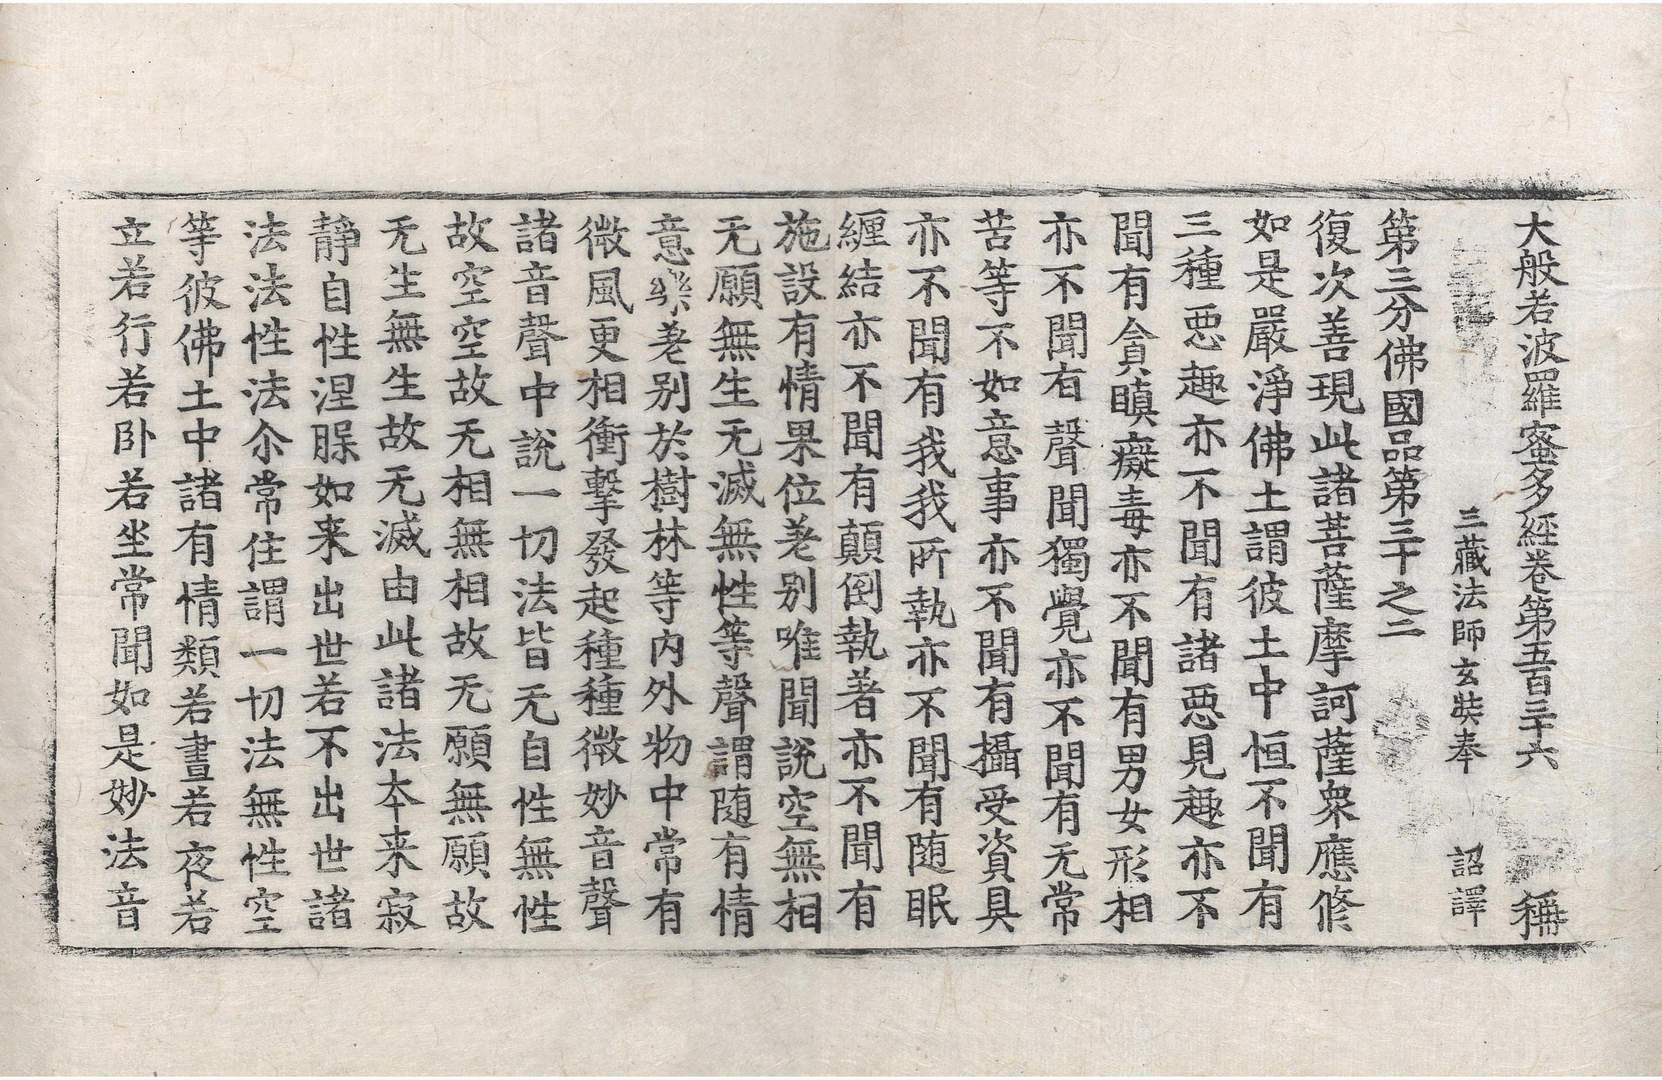 大般若波羅蜜多經卷第五百三十六 稱
三藏法師玄奘奉 詔譯
第三分佛國品第三十之二
復次善現此諸菩薩摩訶薩衆應修
如是嚴淨佛土謂彼土中恒不聞有
三種恶趣亦不聞有諸恶見趣亦不
聞有貪瞋癡毒亦不聞有男女形相
亦不聞有聲聞獨覺亦不聞有无常
苦等不如意事亦不聞有攝受資具
亦不聞有我我所執亦不聞有随眠
纏結亦不聞有顛倒執著亦不聞有
施設有情果位差別唯聞說空無相
无願無生无滅無性等聲謂随有情
意樂差別於樹林等內外物中常有
微風更相衝擊發起種種微妙音聲
諸音聲中說一切法皆无自性無性
故空空故无相無相故无願無願故
无生無生故无滅由此諸法本来寂
静自性涅槃如来出世若不出世諸
法法性法尒常住謂一切法無性空
等彼佛土中諸有情類若晝若夜若
立若行若卧若坐常聞如是妙法音